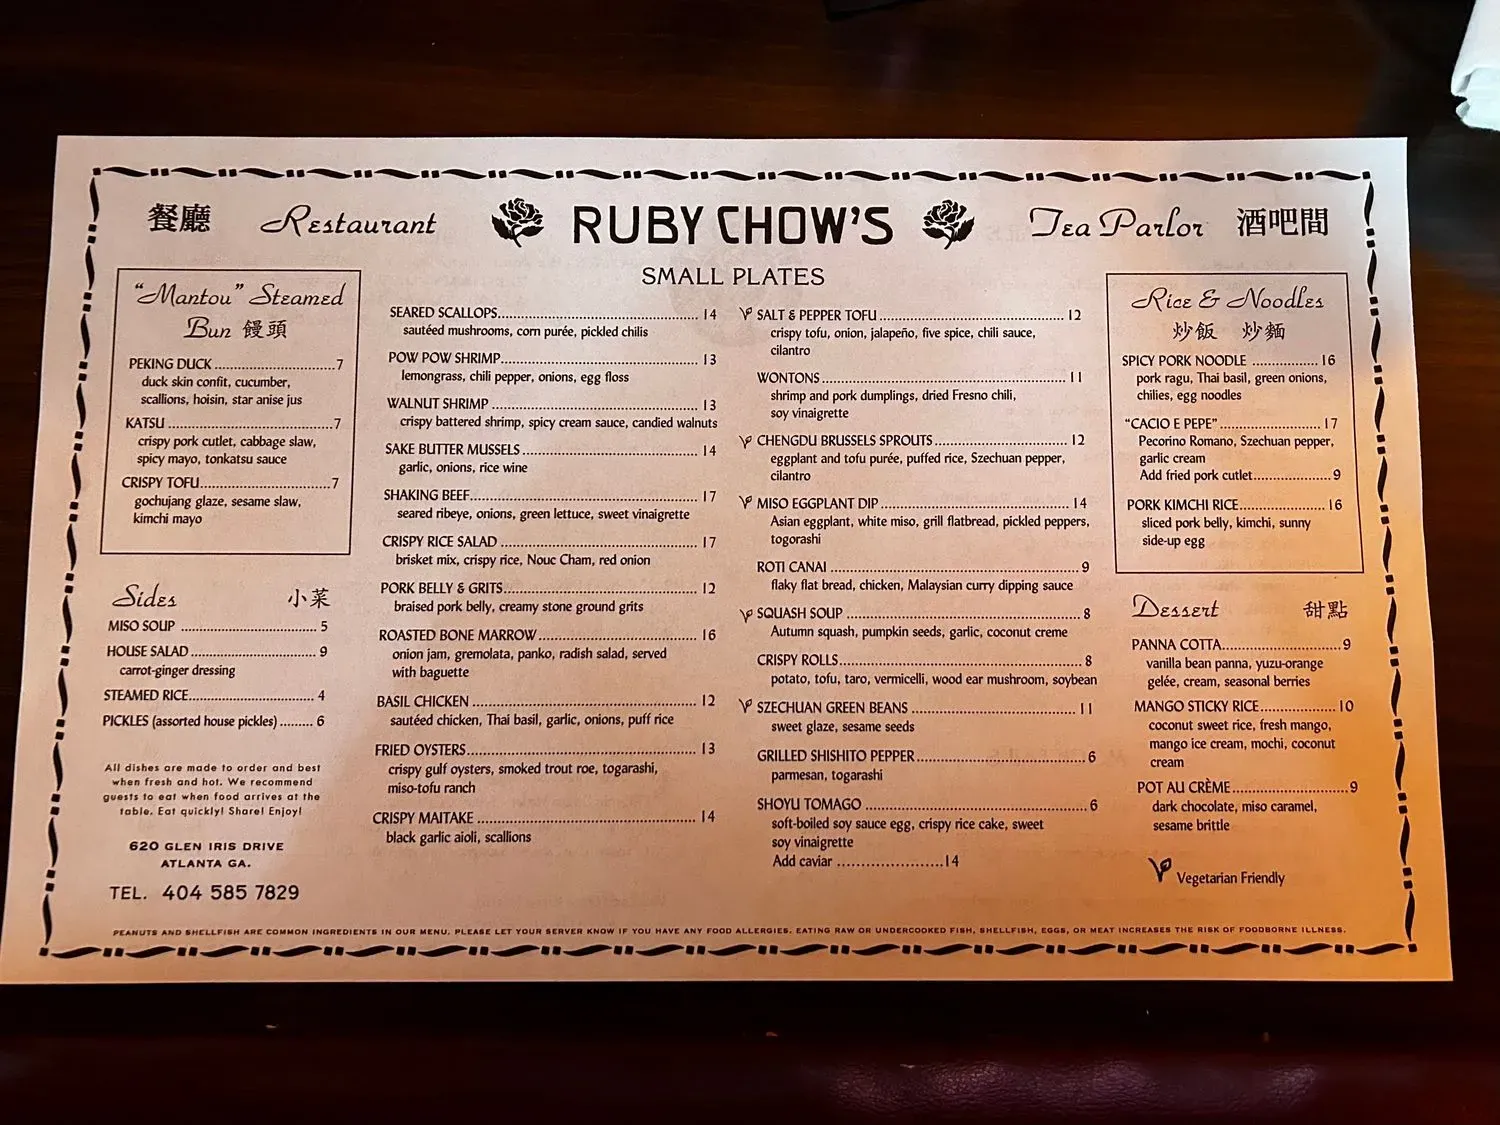 餐廳 Restaurant RUBY CHOW'S Tea Parlor 酒吧間
"Mantou" Steamed
Bun 饅頭
PEKING DUCK ..............................7
duck skin confit, cucumber,
scallions, hoisin, star anise jus
KATSU ..........................................7
crispy pork cutlet, cabbage slaw,
spicy mayo, tonkatsu sauce
CRISPY TOFU.................................7
gochujang glaze, sesame slaw,
kimchi mayo
Sides 小菜
MISO SOUP .................................. 5
HOUSE SALAD ............................... 9
carrot-ginger dressing
STEAMED RICE............................... 4
PICKLES (assorted house pickles) ......... 6
All dishes are made to order and best
when fresh and hot. We recommend
guests to eat when food arrives at the
table. Eat quickly! Share! Enjoy!
620 GLEN IRIS DRIVE
ATLANTA GA.
TEL. 404 585 7829
SMALL PLATES
SEARED SCALLOPS.................................................. 14
sautéed mushrooms, corn purée, pickled chilis
POW POW SHRIMP.................................................. 13
lemongrass, chili pepper, onions, egg floss
WALNUT SHRIMP .................................................... 13
crispy battered shrimp, spicy cream sauce, candied walnuts
SAKE BUTTER MUSSELS............................................ 14
garlic, onions, rice wine
SHAKING BEEF......................................................... 17
seared ribeye, onions, green lettuce, sweet vinaigrette
CRISPY RICE SALAD .................................................. 17
brisket mix, crispy rice, Nouc Cham, red onion
PORK BELLY & GRITS................................................. 12
braised pork belly, creamy stone ground grits
ROASTED BONE MARROW........................................ 16
onion jam, gremolata, panko, radish salad, served
with baguette
BASIL CHICKEN ........................................................ 12
sautéed chicken, Thai basil, garlic, onions, puff rice
FRIED OYSTERS......................................................... 13
crispy gulf oysters, smoked trout roe, togarashi,
miso-tofu ranch
CRISPY MAITAKE ....................................................... 14
black garlic aioli, scallions
SALT & PEPPER TOFU .............................................. 12
crispy tofu, onion, jalapeño, five spice, chili sauce,
cilantro
WONTONS............................................................. 11
shrimp and pork dumplings, dried Fresno chili,
soy vinaigrette
CHENGDU BRUSSELS SPROUTS.................................. 12
eggplant and tofu purée, puffed rice, Szechuan pepper,
cilantro
MISO EGGPLANT DIP ................................................ 14
Asian eggplant, white miso, grill flatbread, pickled peppers,
togorashi
ROTI CANAI .............................................................. 9
flaky flat bread, chicken, Malaysian curry dipping sauce
SQUASH SOUP ........................................................... 8
Autumn squash, pumpkin seeds, garlic, coconut creme
CRISPY ROLLS............................................................. 8
potato, tofu, taro, vermicelli, wood ear mushroom, soybean
SZECHUAN GREEN BEANS ......................................... 11
sweet glaze, sesame seeds
GRILLED SHISHITO PEPPER.......................................... 6
parmesan, togarashi
SHOYU TOMAGO ....................................................... 6
soft-boiled soy sauce egg, crispy rice cake, sweet
soy vinaigrette
Add caviar .......................14
Rice & Noodles
炒飯 炒麵
SPICY PORK NOODLE .................16
pork ragu, Thai basil, green onions,
chilies, egg noodles
"CACIO E PEPE"..........................17
Pecorino Romano, Szechuan pepper,
garlic cream
Add fried pork cutlet...................9
PORK KIMCHI RICE......................16
sliced pork belly, kimchi, sunny
side-up egg
Dessert 甜點
PANNA COTTA.............................9
vanilla bean panna, yuzu-orange
gelée, cream, seasonal berries
MANGO STICKY RICE...................10
coconut sweet rice, fresh mango,
mango ice cream, mochi, coconut
cream
POT AU CRÈME............................9
dark chocolate, miso caramel,
sesame brittle
Vegetarian Friendly
PEANUTS AND SHELLFISH ARE COMMON INGREDIENTS IN OUR MENU. PLEASE LET YOUR SERVER KNOW IF YOU HAVE ANY FOOD ALLERGIES. EATING RAW OR UNDERCOOKED FISH, SHELLFISH, EGGS, OR MEAT INCREASES THE RISK OF FOODBORNE ILLNESS.